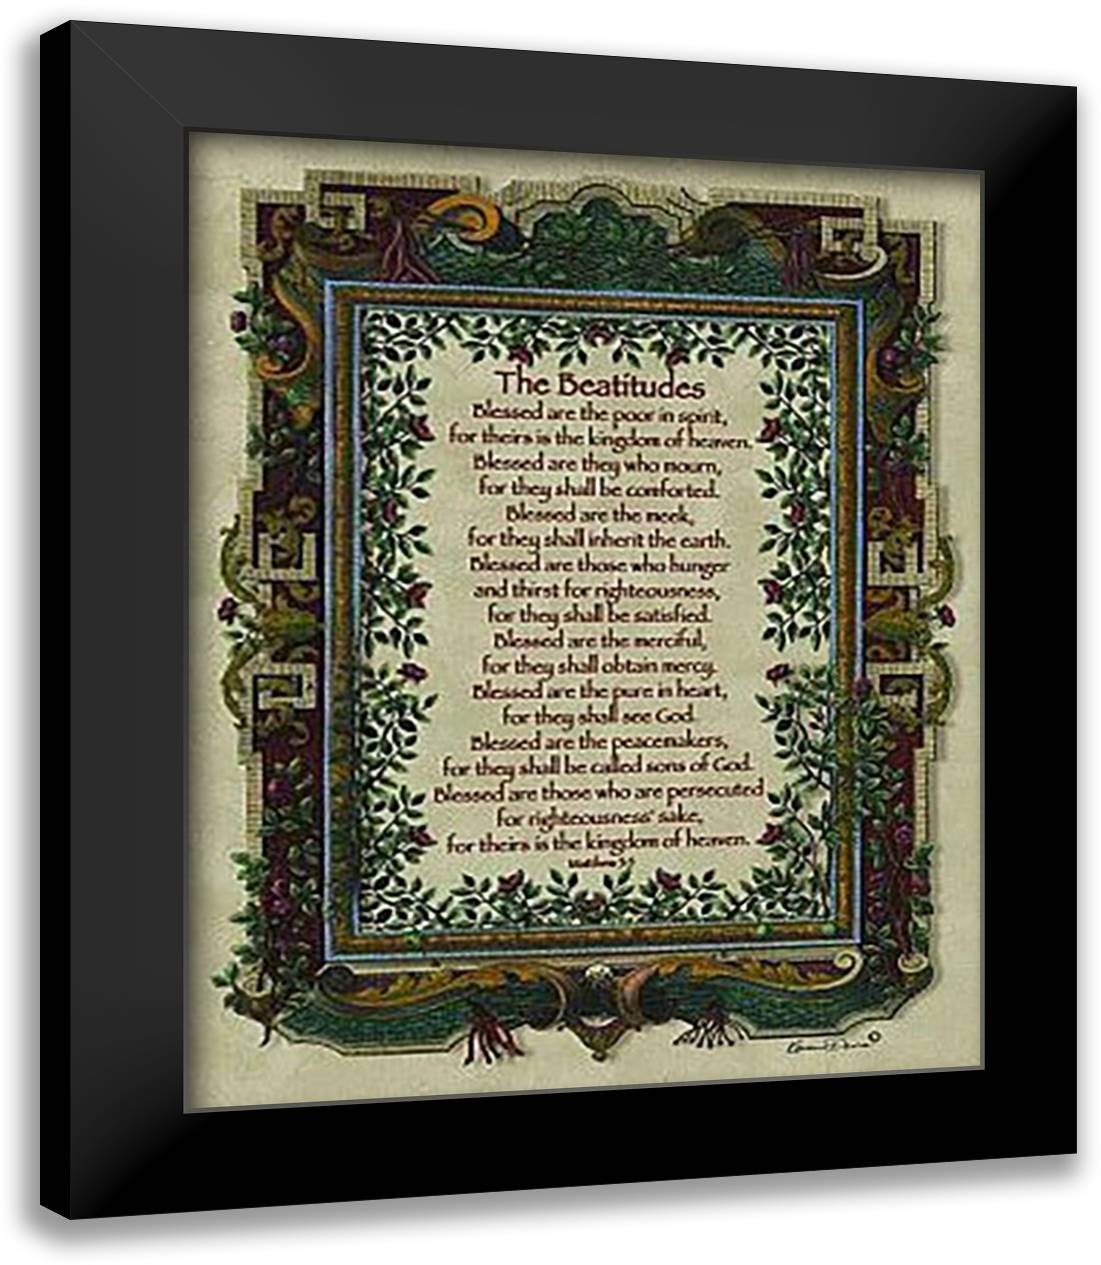 The Beatitudes
Blessed are the poor in spirit,
for theirs is the kingdom of heaven.
Blessed are they who mourn,
for they shall be comforted.
Blessed are the meek,
for they shall inherit the earth.
Blessed are those who hunger
and thirst for righteousness,
for they shall be satisfied.
Blessed are the merciful,
for they shall obtain mercy.
Blessed are the pure in heart,
for they shall see God.
Blessed are the peacemakers,
for they shall be called sons of God.
Blessed are those who are persecuted
for righteousness' sake,
for theirs is the kingdom of heaven.
©